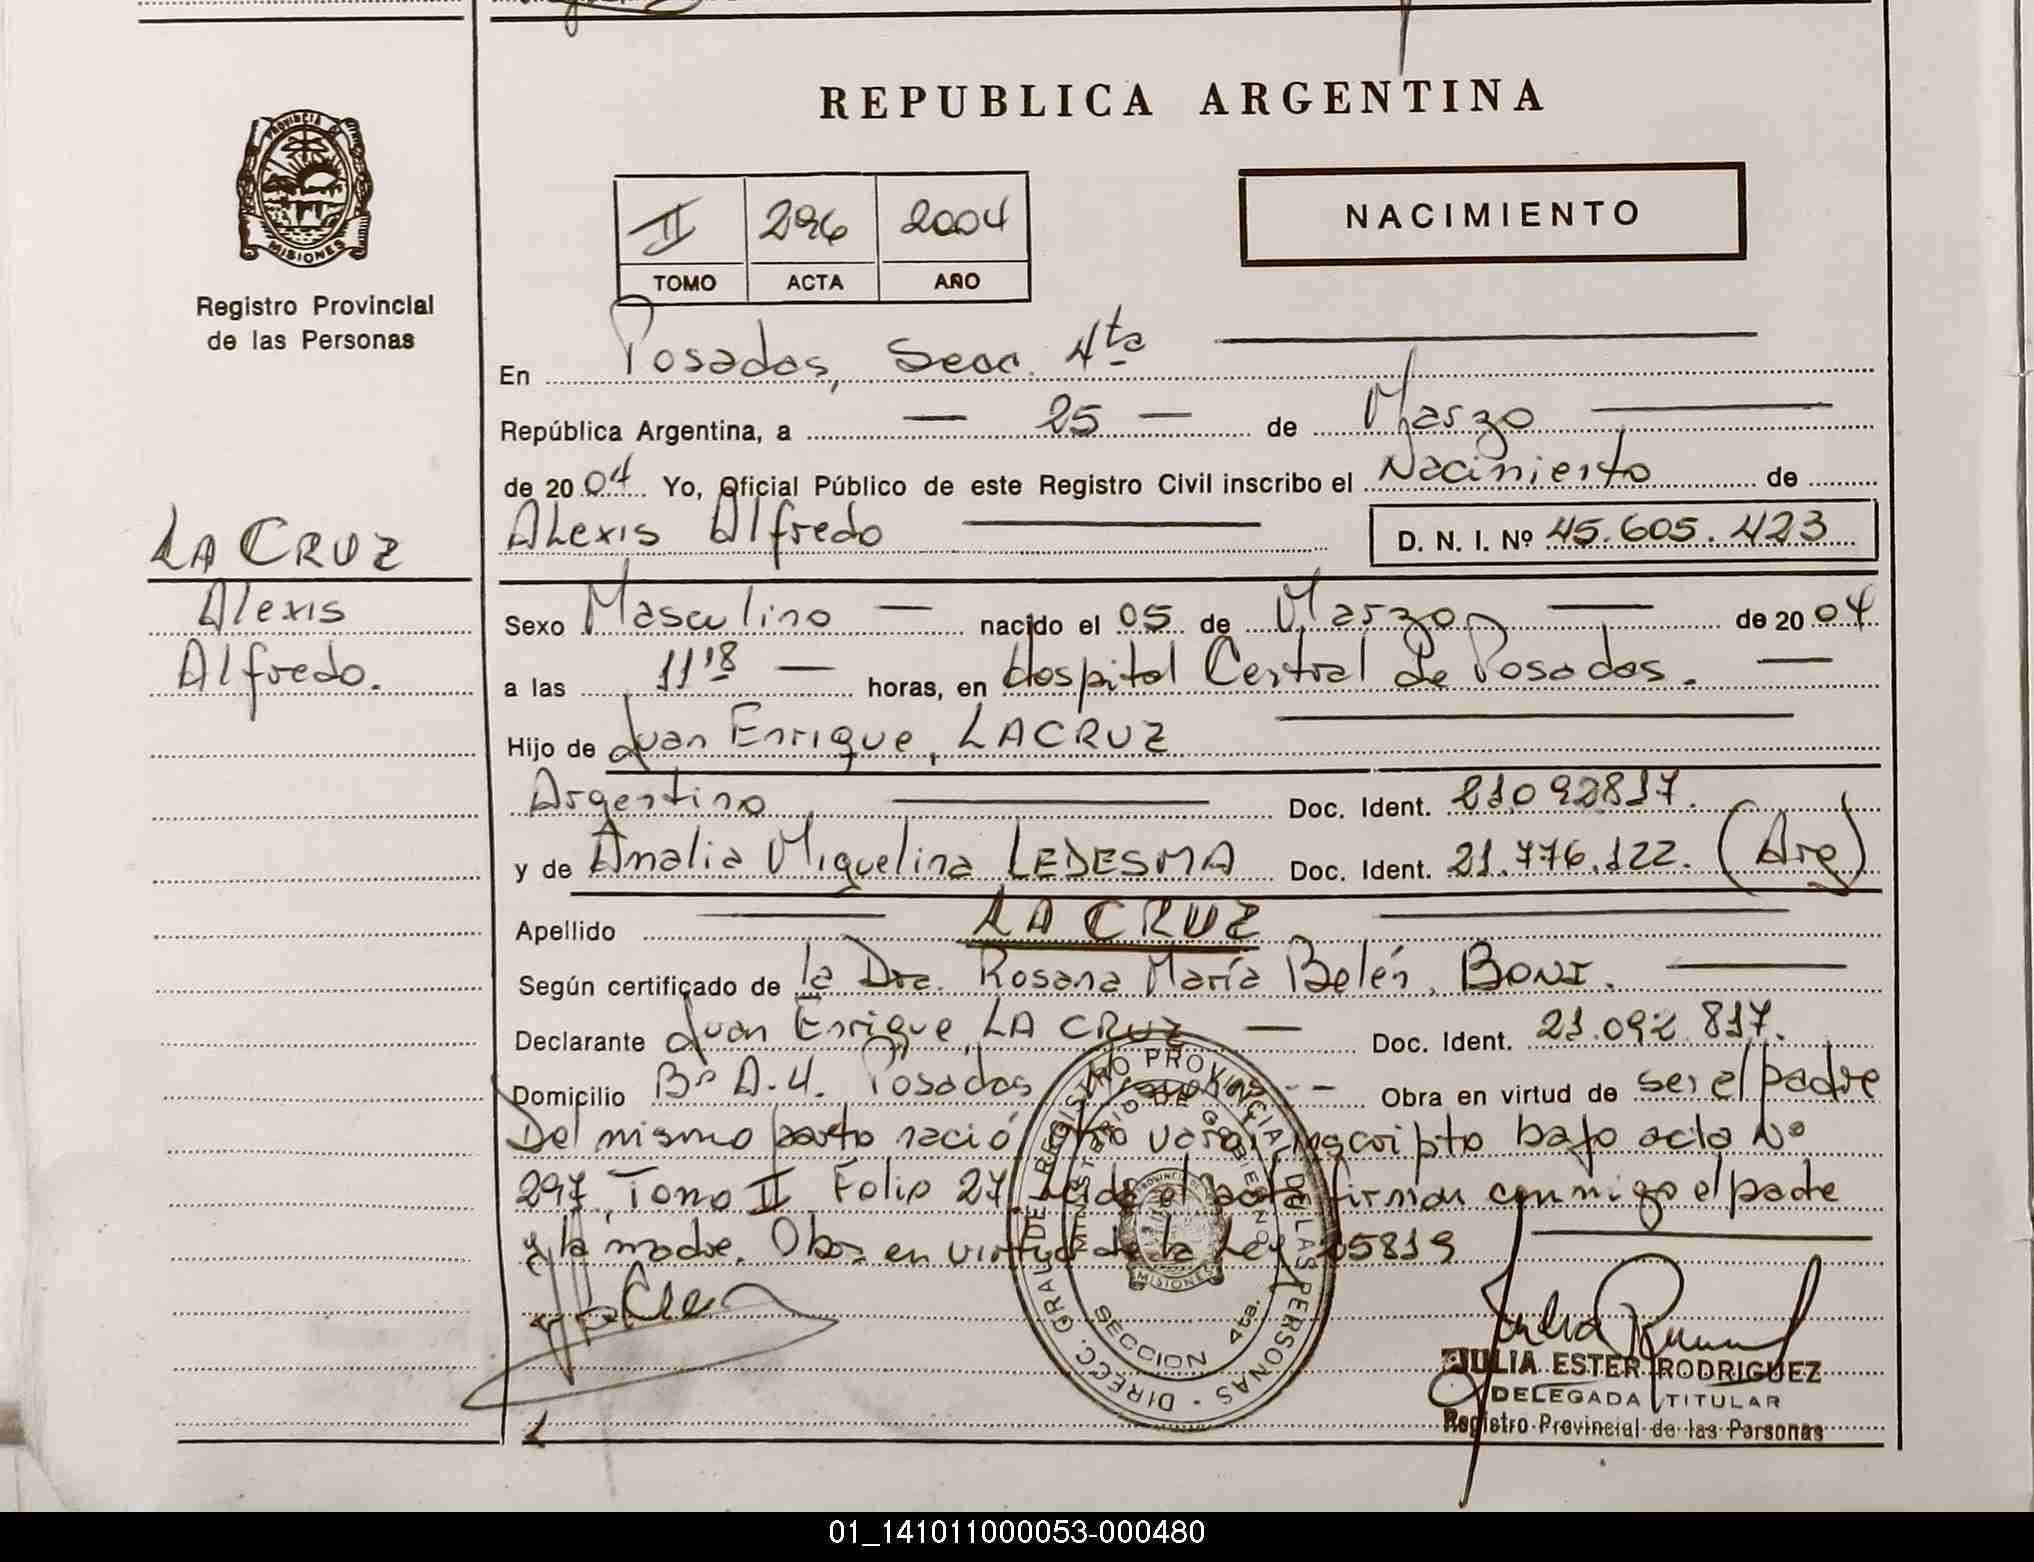 REPUBLICA ARGENTINA
PROVINCIA DE
MISIONES
Registro Provincial
de las Personas
II 296 2004
TOMO ACTA AÑO
NACIMIENTO
En Posadas, Secc. 4ta
República Argentina, a 25 de Marzo
de 2004 Yo, Oficial Público de este Registro Civil inscribo el Nacimiento de
Alexis Alfredo D. N. I. Nº 45.605.423
LA CRUZ
Alexis
Alfredo.
Sexo Masculino nacido el 05 de Marzo de 2004
a las 11'18 horas, en Hospital Central de Posadas.
Hijo de Juan Enrique, LACRUZ
Argentino Doc. Ident. 21092817.
y de Amalia Miguelina LEDESMA Doc. Ident. 21.776.122. (Arg)
Apellido LA CRUZ
Según certificado de la Dra. Rosana María Belén, BONI.
Declarante Juan Enrique, LA CRUZ Doc. Ident. 21.092.817.
Domicilio Bº A.4. Posadas Obra en virtud de ser el padre
Del mismo parto nació otro varón inscripto bajo acta Nº
297, Tomo II Folio 27, leida el acta firman conmigo el padre
y la madre. Obra en virtud de la Ley 25819
DIRECC. GRAL. DE REGISTRO PROVINCIAL DE LAS PERSONAS
MINISTERIO DE GOBIERNO
MISIONES
SECCION 4ta.
JULIA ESTER RODRIGUEZ
DELEGADA TITULAR
Registro Provincial de las Personas
01_141011000053-000480